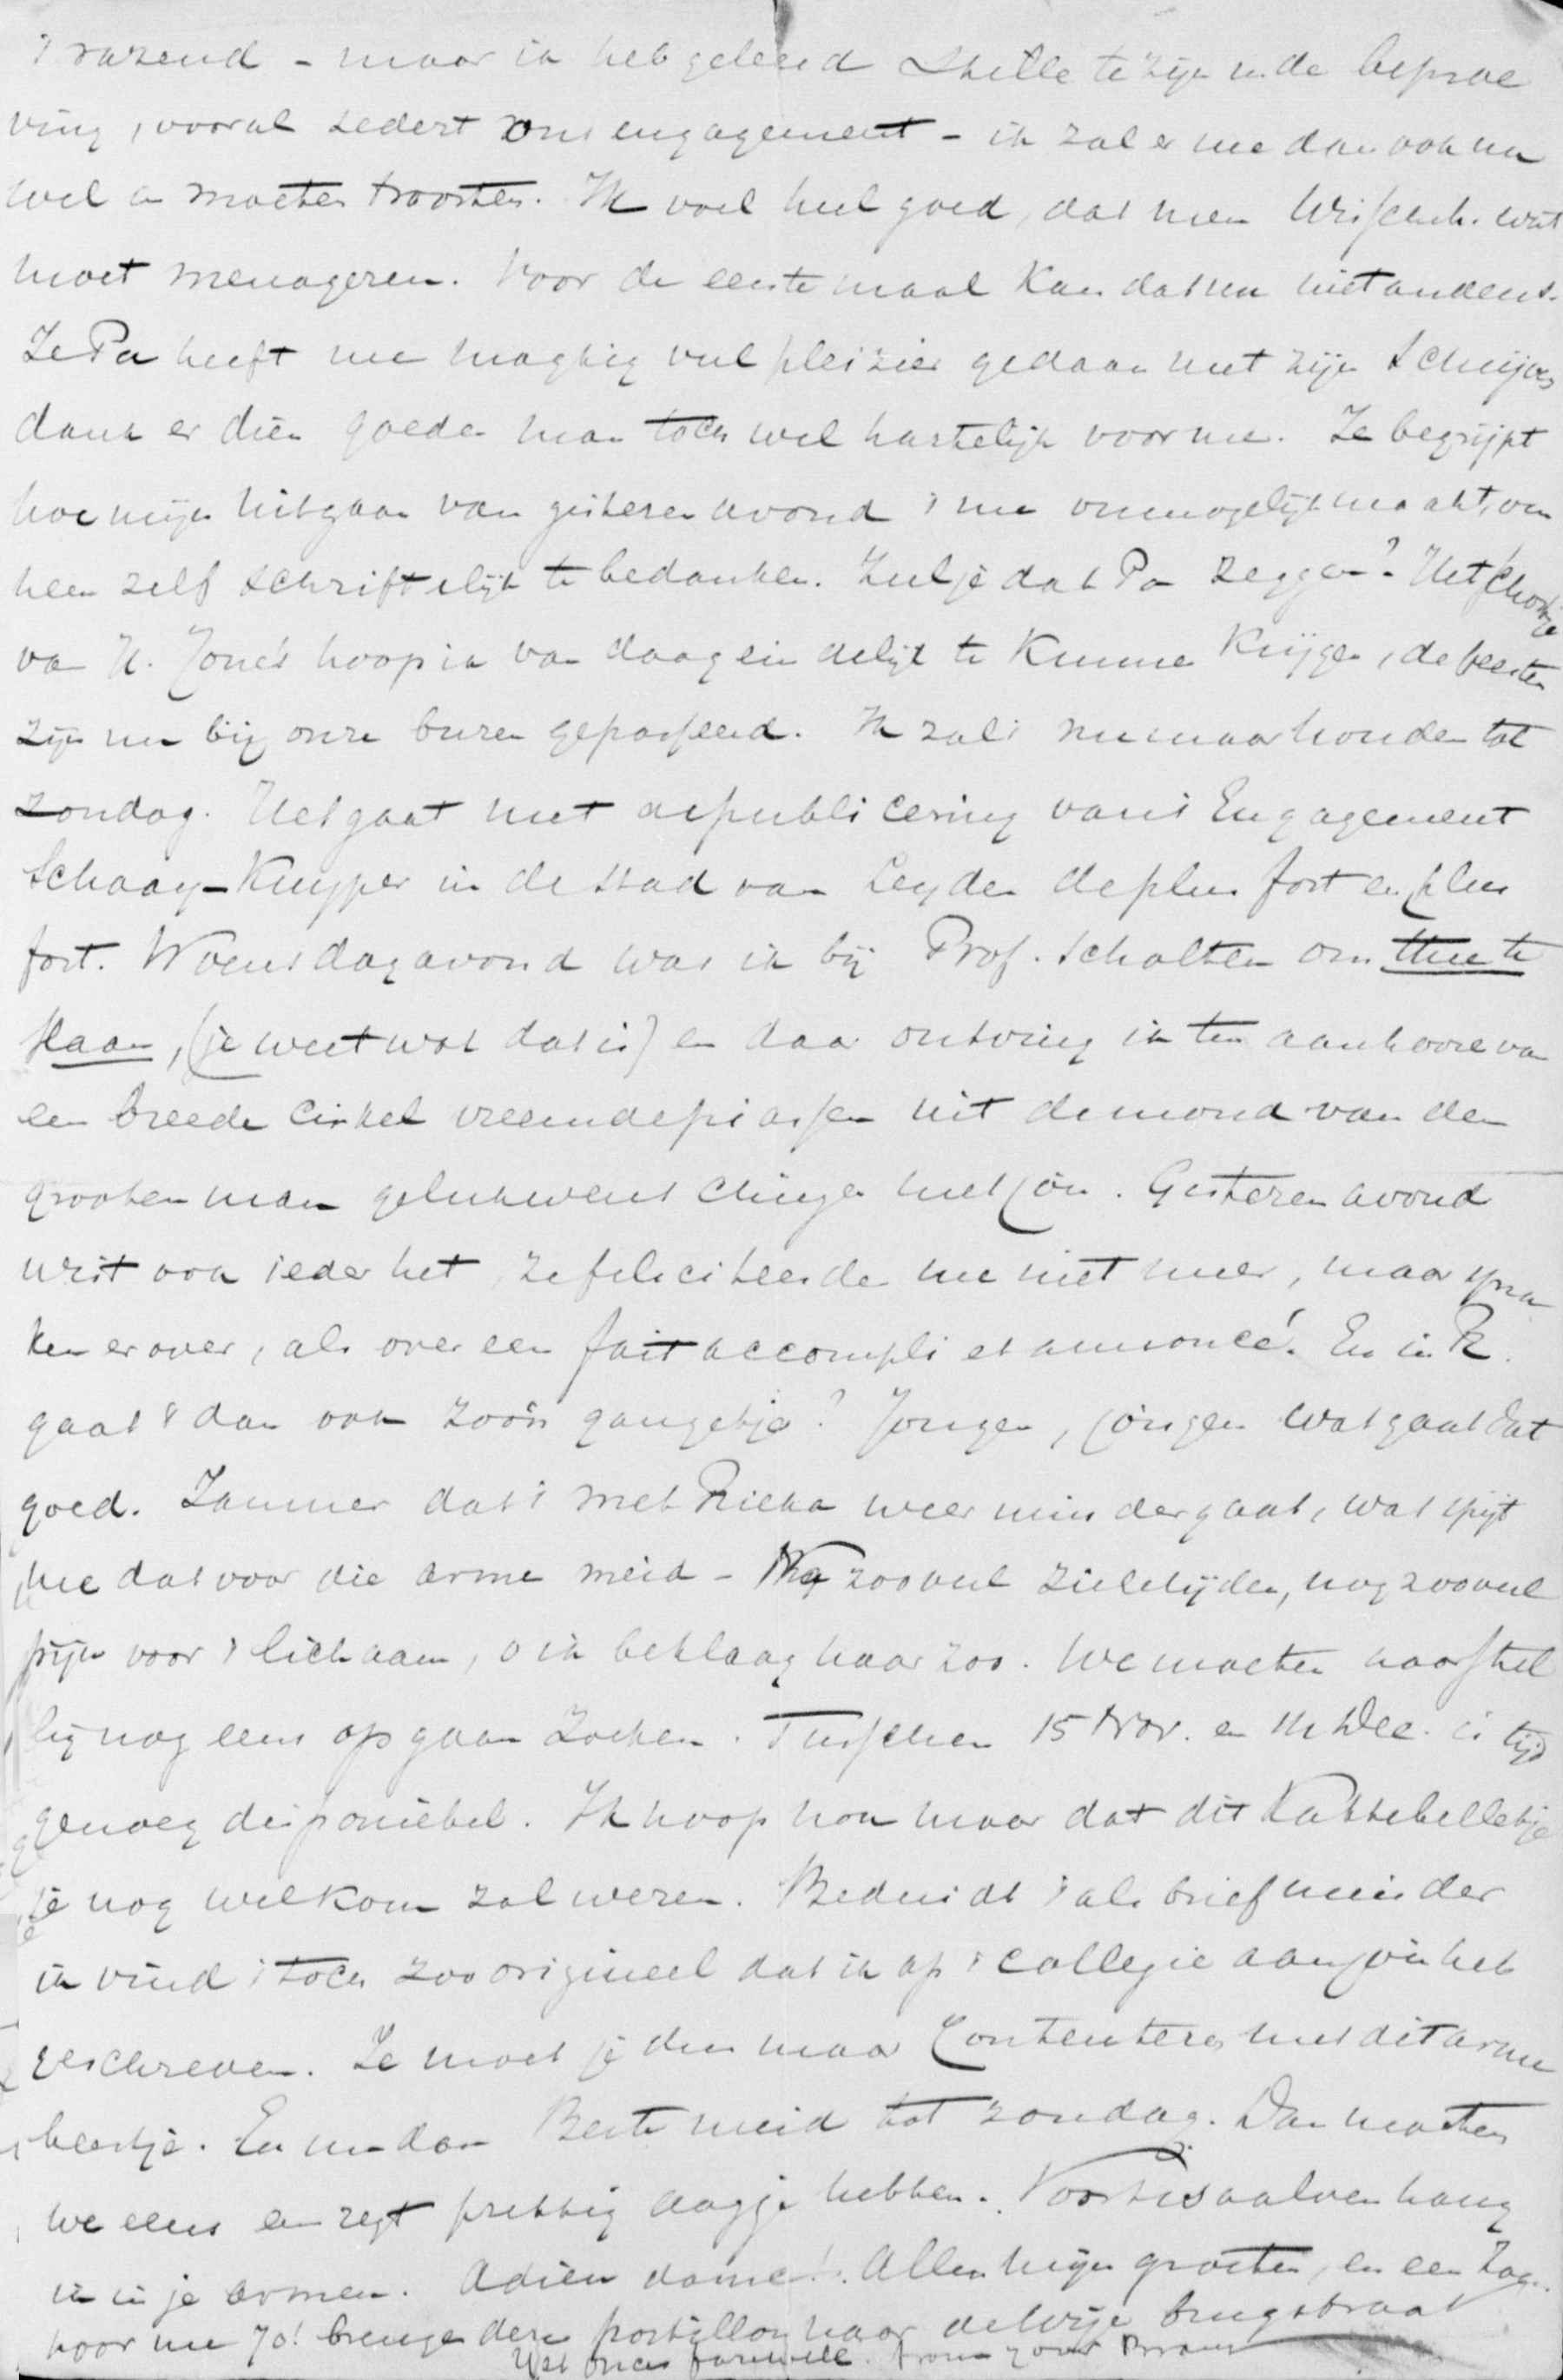 razend - maar ik heb geleerd stille te zijn in de beproe
ving, vooral sedert ons engagement - ik zal er me dan ook nu
wel in moeten troosten. Ik voel heel goed, dat men Wissench. wat
moet menageren. Voor de eerste maal kan dat nu niet anders.
Je Pa heeft me magtig veel pleizier gedaan met zijn schrijven
dank er dien goeden man toch wel hartelijk voor me. Je begrijpt
hoe mijn uitgaan van gisteren avond 't me onmogelijk maakt, om
hem zelf schriftelijk te bedanken. Zul je dat Pa zeggen? Het
van U. Jone's hoop ik van daag eindelijk te kunnen krijgen, de feesten
zijn nu bij onze buren gepasseerd. Ik zal 't nu maar houden tot
zondag. Het gaat met de publicering van 't Engagement
Schaay-Kuyper in de stad van Leyden de plus fort en plus
fort. Woensdagavond was ik bij Prof. Scholten om thee te
slaan, (je weet wat dat is) en daar ontving ik ten aanhoore van
een breede cirkel vreemde piassen uit de mond van den
grooten man gelukwenschingen met Jou. Gisteren avond
wist ook ieder het, ze feliciteerden me niet meer, maar spra
ken er over, als over een fait accompli et annoncé. En in R.
gaat 't dan ook zoo'n gangetje? Jongen, jongen wat gaat dat
goed. Jammer dat 't met Rieka weer minder gaat, wat spijt
me dat voor die arme meid - Nog zooveel zielelijden, nog zooveel
pijn voor 't lichaam, o ik beklaag haar zoo. We moeten haar stel
lig nog eens op gaan zoeken. Tusschen 15 Nov. en 11 Dec. is tijd
genoeg disponiebel. Ik hoop nou maar dat dit Kattebelletje
je nog welkom zal wezen. Beduidt 't als brief minder
ik vind 't toch zoo origineel dat ik op 't collegie aan jou heb
geschreven. Je moet je dus maar contenteren met dit arme
beestje. En nu dan Beste meid tot zondag. Dan moeten
we eens een regt prettig dagje hebben. Voor 't saalven hang
ik in je armen. Adieu dame! Allen mijn groeten, en een
voor me Jo! brenge deze postillon naar de Wije brugstraat
Yet once farewell. from your Bram